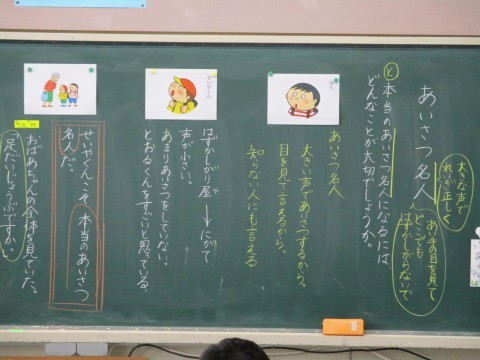 あいさつ名人
大きな声で
れいぎ正しく
あい手の目を見て
どこでも
はずかしがらないで
と
本当のあいさつ名人になるには、
どんなことが大切でしょうか。
あいさつ名人
大きい声であいさつするから。
目を見て言えるから。
知らない人にも言える
はずかしがり屋→にがて
や
声が小さい。
あまりあいさつをしていない。
とおるくんをすごいと思っている。
せいやくんこそ、本当のあいさつ
名人だ。
おばあちゃんの全体を見ていた。
「足だいじょうぶですか。」